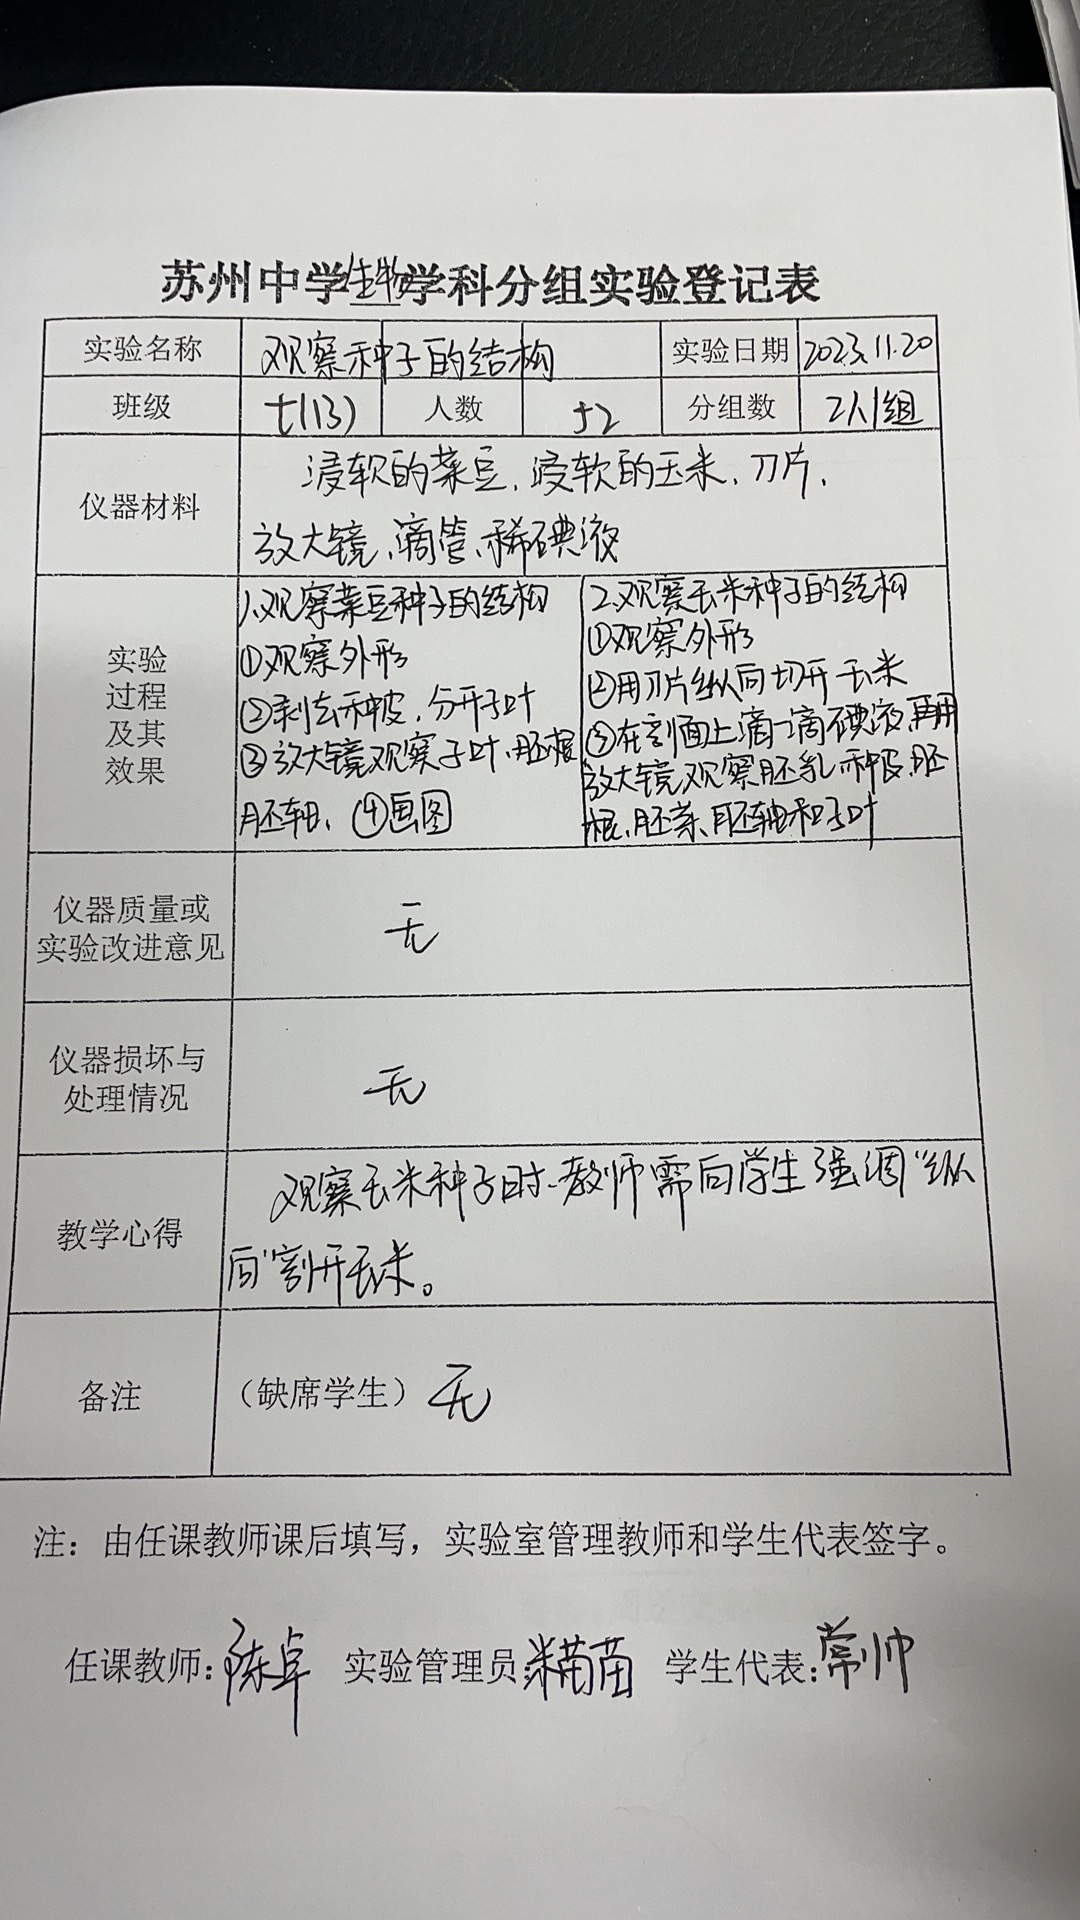 苏州中学生物学科分组实验登记表
实验名称 观察种子的结构 实验日期 2023.11.20
班级 七(13) 人数 52 分组数 2人1组
仪器材料
浸软的菜豆、浸软的玉米、刀片、
放大镜、滴管、稀碘液
实验
过程
及其
效果
1.观察菜豆种子的结构
①观察外形
②剥去种皮、分开子叶
③放大镜观察子叶、胚根
胚轴、④画图
2.观察玉米种子的结构
①观察外形
②用刀片纵向切开玉米
③在割面上滴一滴碘液,再用
放大镜观察胚乳、种皮、胚
根、胚芽、胚轴和子叶
仪器质量或
实验改进意见
无
仪器损坏与
处理情况
无
教学心得
观察玉米种子时、教师需向学生强调“纵
向”割开玉米。
备注
(缺席学生) 无
注：由任课教师课后填写，实验室管理教师和学生代表签字。
任课教师：陈卓 实验管理员：米苗苗 学生代表：常帅